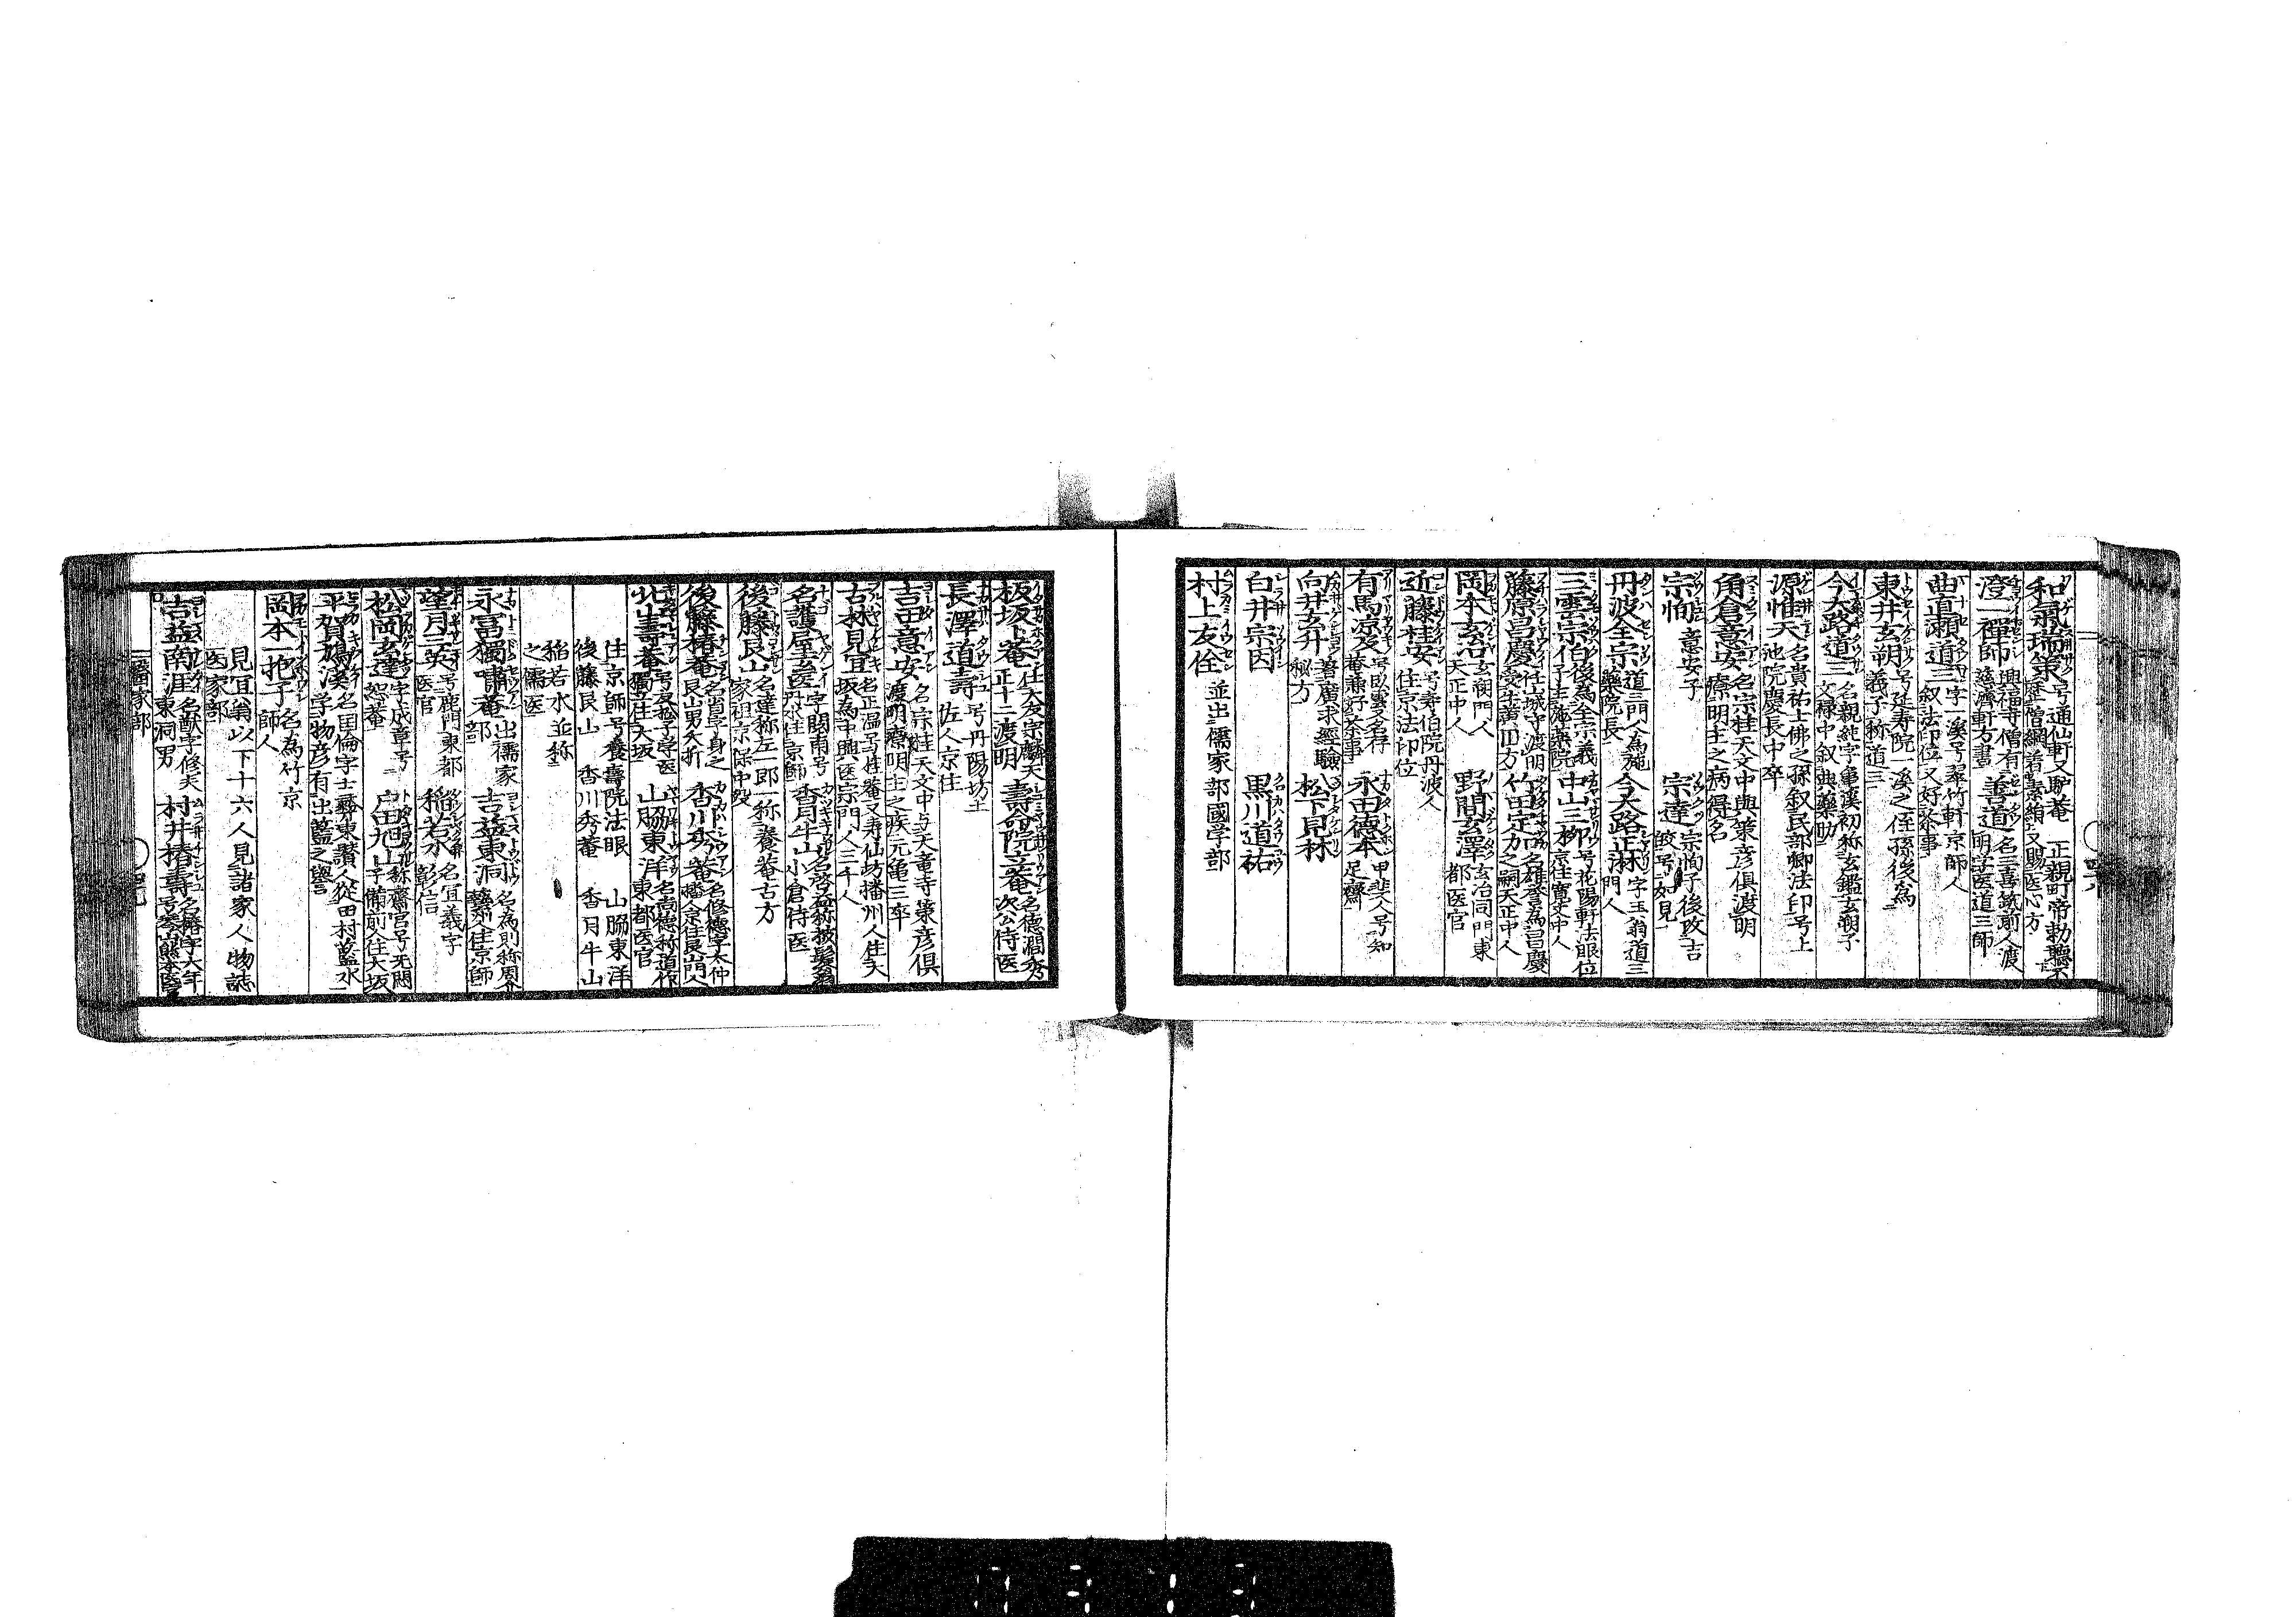 和氣瑞策 号通仙軒又馿菴 正親町帝勅聽不
歴僧綱着素絹又賜医心方
澄一禪師 興福寺僧有
慈濟軒方書 善道 名三喜鋭 人渡
明学医道三師
曲直瀬道三 字一溪号翠竹軒京師人
叙法印位又好茶事
東井玄朔 号延寿院一溪之侄孫後為
義子称道三
今大路道三 名親純字亀溪初称玄鑑玄朔子
文禄中叙典藥助
源惟天 名貴祐上佛之孫叙民部卿法印号上
池院慶長中卒
角倉意安 名宗桂天文中與策彦俱渡明
療明主之病得名
宗恂 意安子 宗達 宗恂子後改吉
皎号如見
丹波全宗 道三門人為施
藥院長 今大路正淋 字玉翁道三
門人
三雲宗伯 後為全宗義
子主施藥院 中山三柳 号花陽軒法眼位
京住寛文中人
藤原昌慶 任山城守渡明
受牛黄円方 竹田定加 名雄誉為昌慶
之嗣天正中人
岡本玄冶 玄朔門人
天正中人 野間玄澤 玄冶同門東
都医官
近藤桂安 号寿伯院丹波人
住京法印位
有馬凉及 号臥雲又名存
菴兼好茶事 永田徳本 甲斐人号知
足齋
向井玄升 善廣求經驗
秘方 松下見林
白井宗因 黒川道祐
村上友佺 並出儒家部國学部
板坂卜菴 仕大友宗麟天
正十二渡明 壽命院立菴 名德潤秀
次公侍医
長澤道壽 号丹陽坊土
佐人京住
吉田意安 名宗桂天文中与天竜寺策彦俱
渡明療明主之疾元亀三卒
古林見宜 名正温号桂菴又寿仙坊播州人住大
坂為中興医宗門人三千人
名護屋玄医 字閲甫号
丹水住京師 香月牛山 名啓益称披髮翁
小倉侍医
後藤艮山 名達称左一郎一称養菴古方
家祖京保中殁
後藤椿菴 名省字身之
艮山男夭折 香川秀菴 名修德字太仲
播人京住艮山門人
北山壽菴 号友松子学医
獨立住大坂 山脇東洋 名尚德称道作
東都医官
住京師号養壽院法眼 山脇東洋
後藤艮山 香川秀菴 香月牛山
稲若水並称
之儒医
永富獨嘯菴 出儒家
部 吉益東洞 名為則称周介
藝州住京師
望月三英 号鹿門東都
医官 稲若水 名宜義字
彰信
松岡玄達 字成章号
怨菴 戸田旭山 称齋宮号无悶
子備前人住大坂
平賀鳩溪 名国倫字士彜東讃人從田村藍水
学物彦有出藍之譽
岡本一抱子 名為竹京
師人
見宜翁以下十六人見諸家人物誌
医家部
吉益南涯 名猷字修夫
東洞男 村井椿壽 名椿字大年
号琴山熊本医官
醫家部
四八
四九